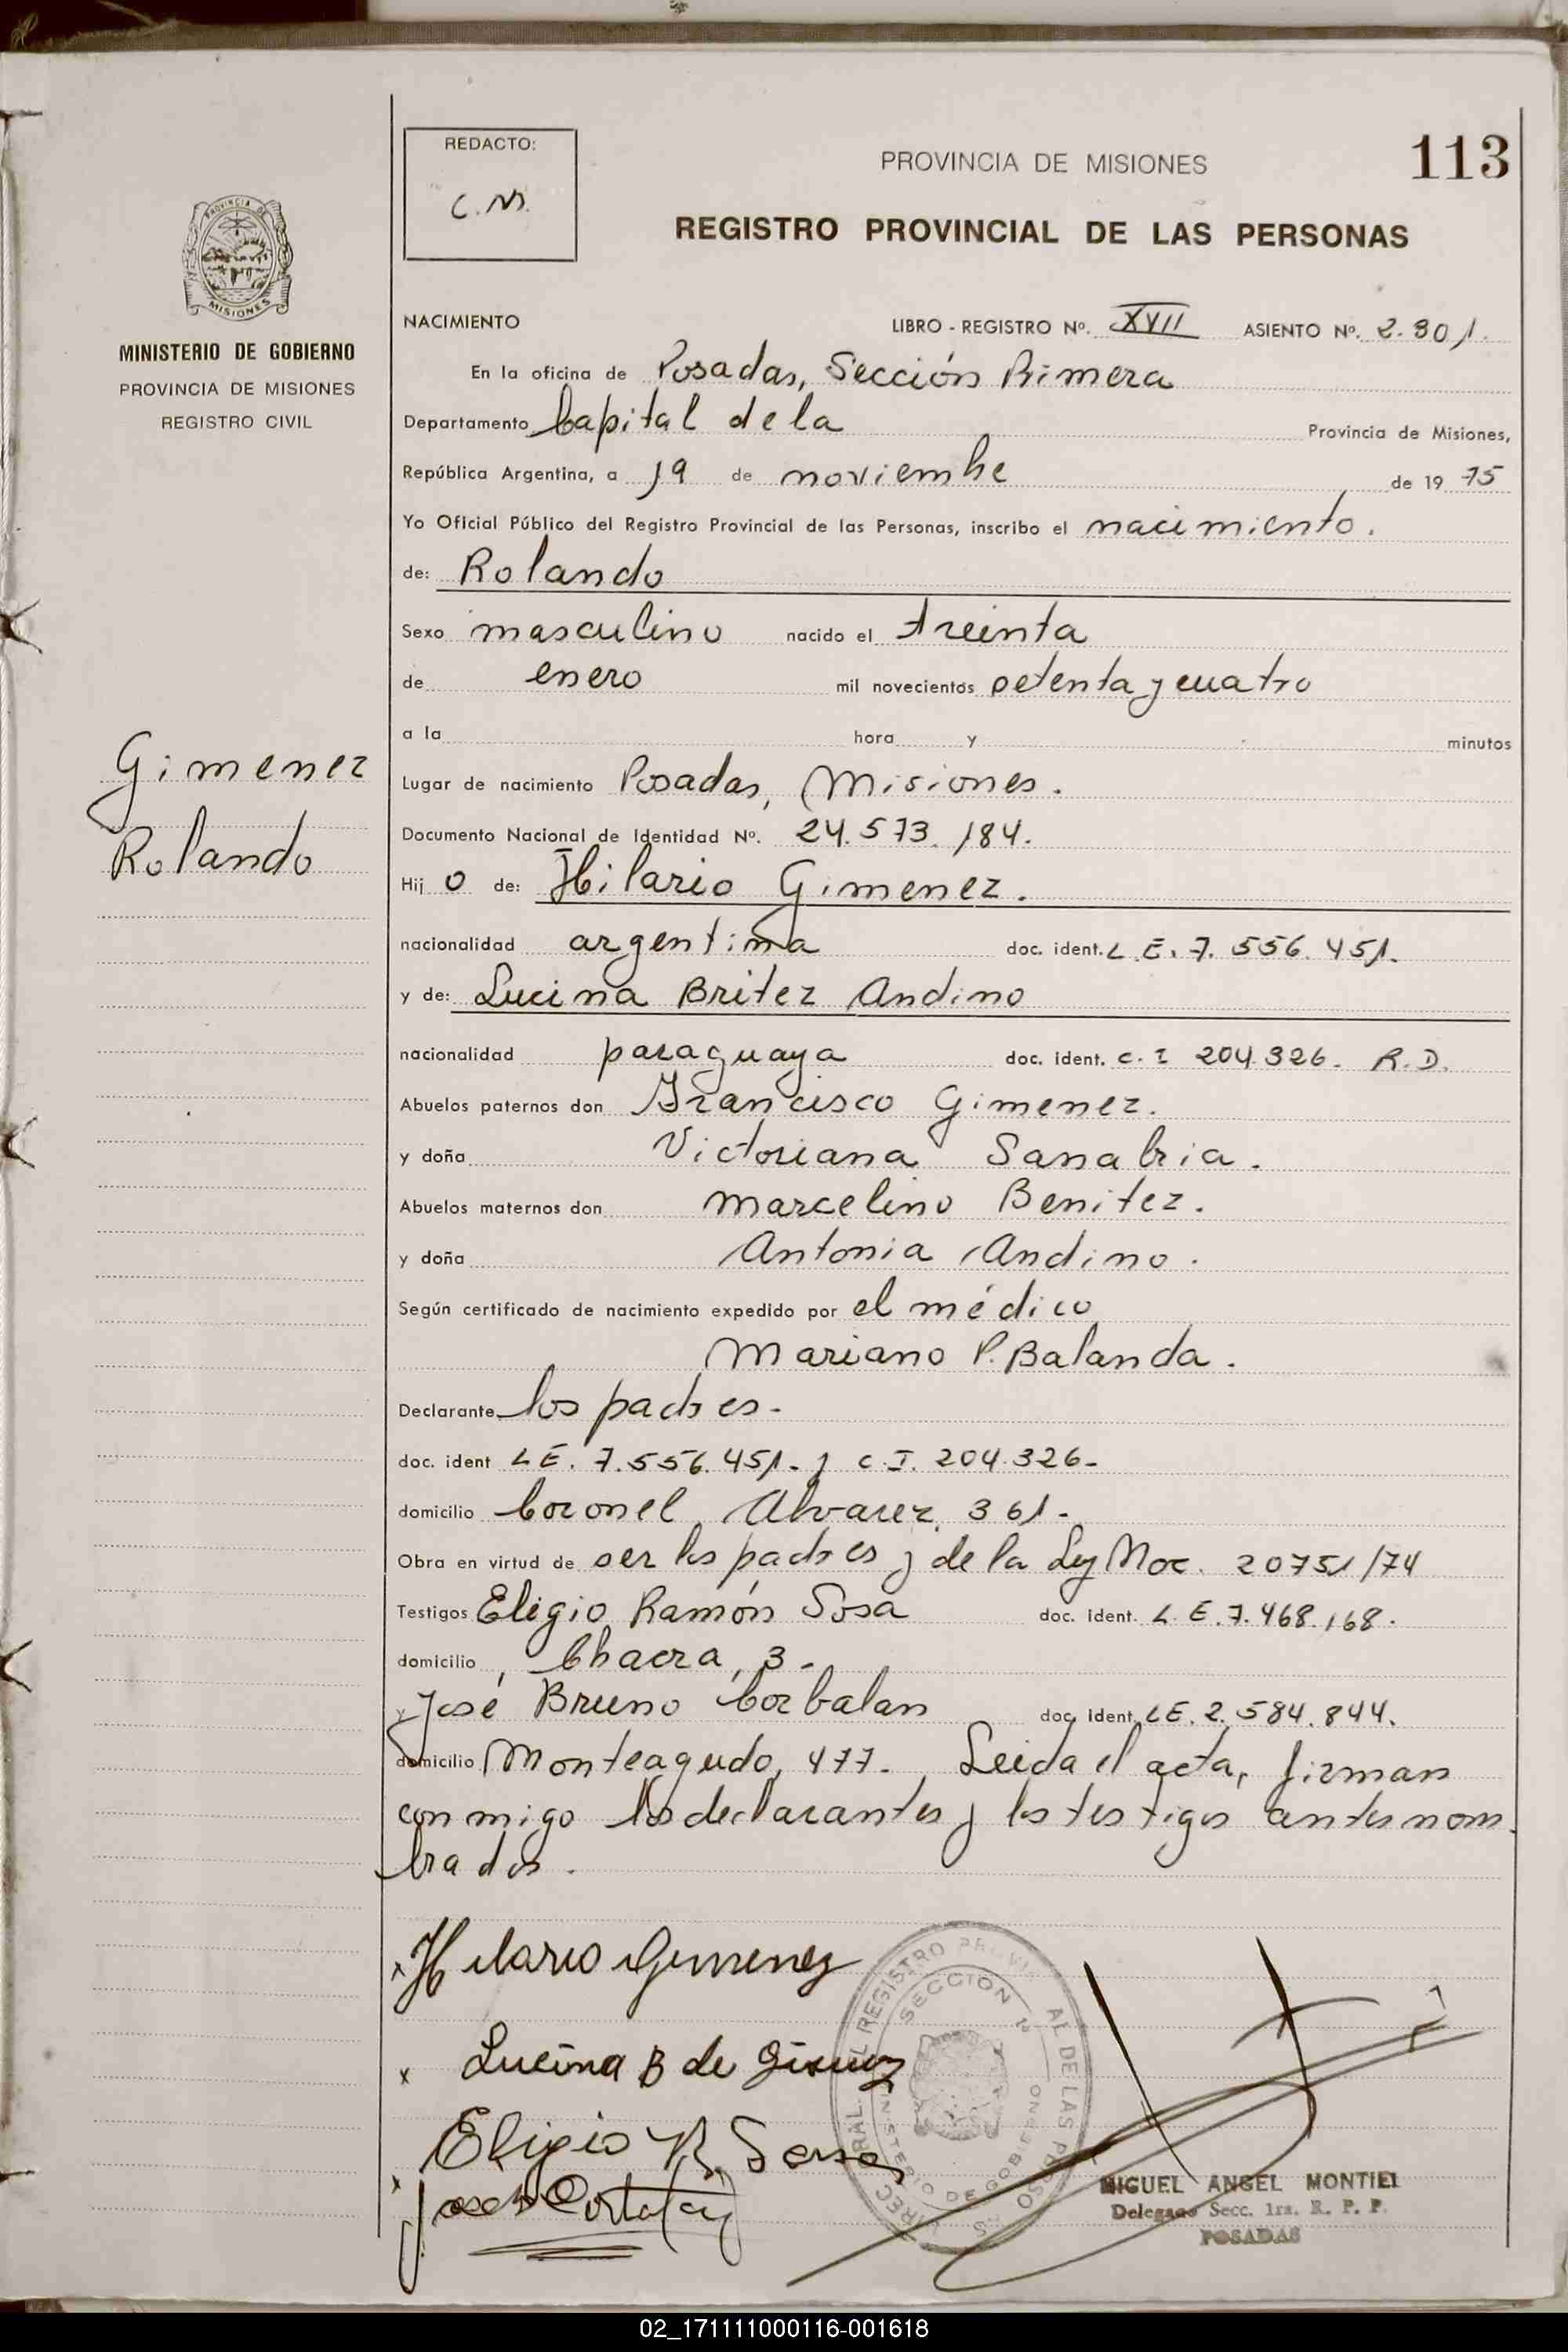 113
REDACTO:
C.M.
PROVINCIA DE MISIONES
REGISTRO PROVINCIAL DE LAS PERSONAS
PROVINCIA DE
MISIONES
MINISTERIO DE GOBIERNO
PROVINCIA DE MISIONES
REGISTRO CIVIL
Gimenez
Rolando
NACIMIENTO LIBRO - REGISTRO Nº. XVII ASIENTO Nº. 2.301.
En la oficina de Posadas, Sección Primera
Departamento Capital de la Provincia de Misiones,
República Argentina, a 19 de noviembre de 19 75
Yo Oficial Público del Registro Provincial de las Personas, inscribo el nacimiento.
de: Rolando
Sexo masculino nacido el treinta
de enero mil novecientos setenta y cuatro
a la hora y minutos
Lugar de nacimiento Posadas, Misiones.
Documento Nacional de Identidad Nº. 24.573.184.
Hij o de: Hilario Gimenez.
nacionalidad argentina doc. ident. L.E. 7.556.451.
y de: Lucina Britez Andino
nacionalidad paraguaya doc. ident. C.I 204.326. R.D.
Abuelos paternos don Francisco Gimenez.
y doña Victoriana Sanabria.
Abuelos maternos don Marcelino Benitez.
y doña Antonia Andino.
Según certificado de nacimiento expedido por el médico
Mariano P. Balanda.
Declarante los padres.
doc. ident L.E. 7.556.451. y C.I. 204.326-
domicilio Coronel Alvarez, 361-
Obra en virtud de ser los padres y de la Ley Nac. 20751/74
Testigos Eligio Ramón Sosa doc. ident. L.E. 7.468.168.
domicilio, Chacra, 3-
y José Bruno Corbalan doc. ident. LE. 2.584.844.
domicilio Monteagudo, 477-. Leida el acta, firman
conmigo los declarantes y los testigos antes nom
brados.
x Hilario Gimenez
x Lucina B de Gimenez
Eligio R. Sosa
SECCION 1ª
MINISTERIO DE GOBIERNO
MIGUEL ANGEL MONTIEL
Delegado Secc. 1ra. R. P. P.
POSADAS
02_171111000116-001618